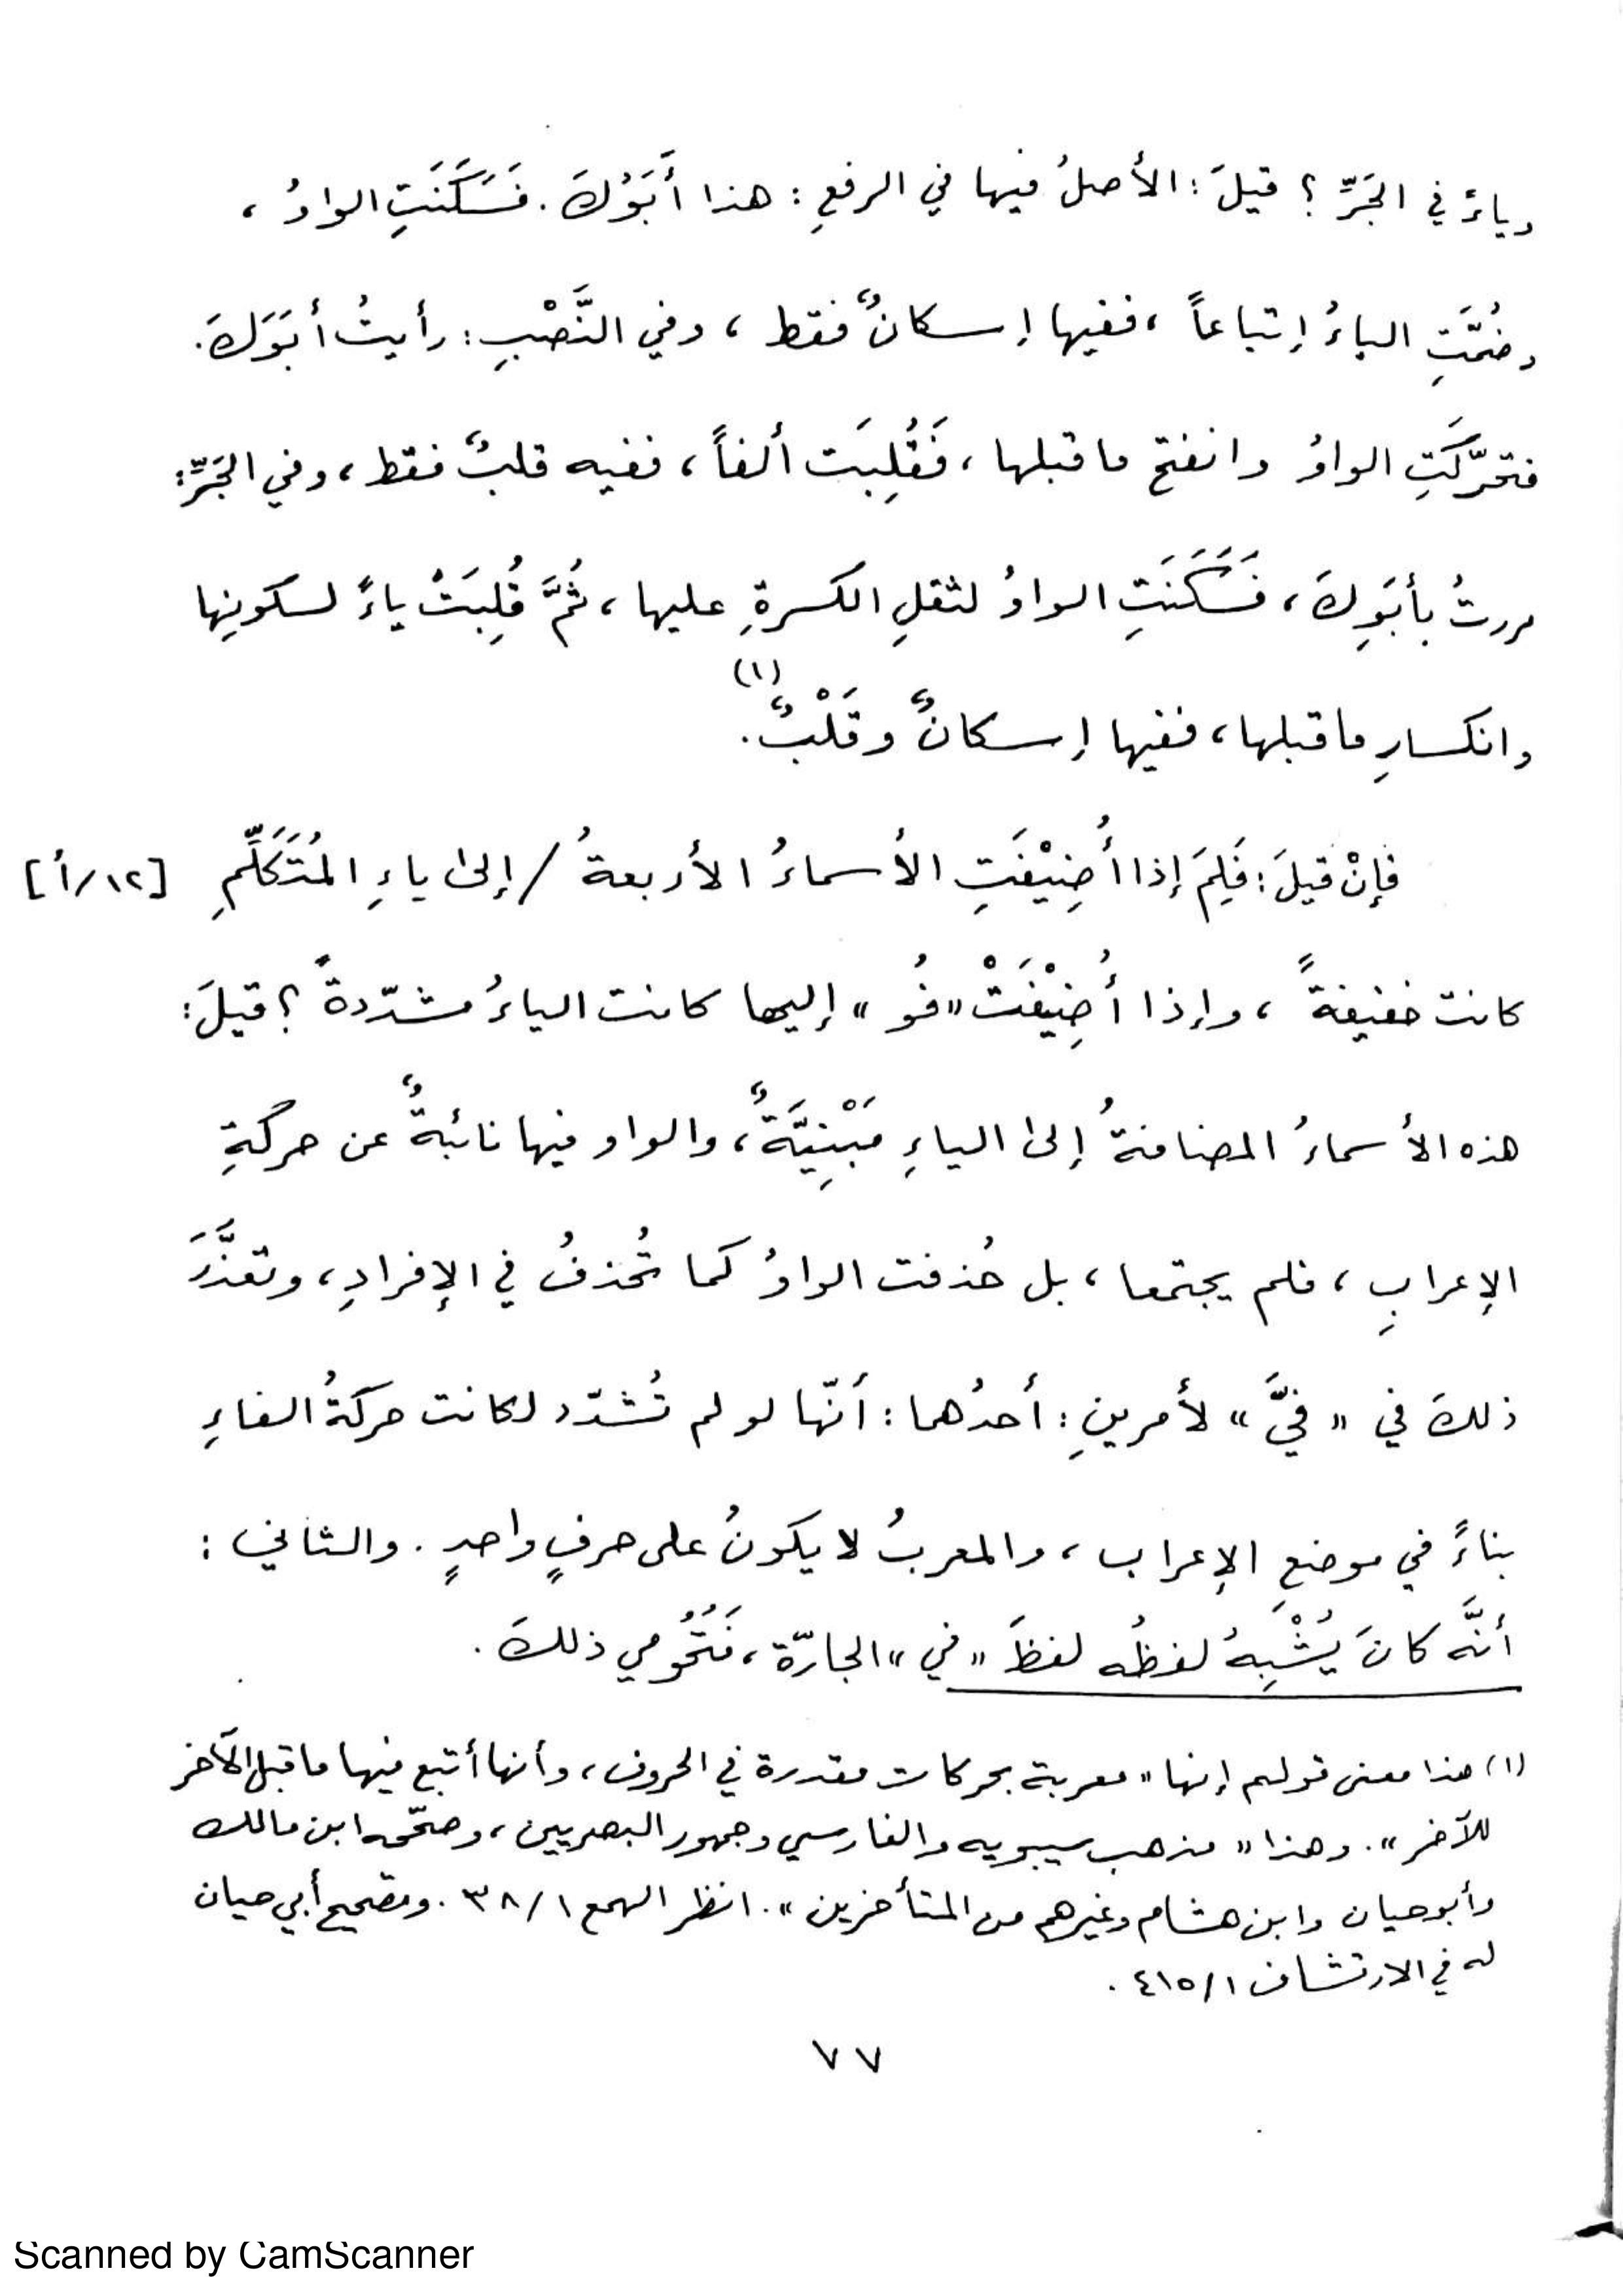 وياءً في الجَرِّ؟ قيلَ: الأصلُ فيها في الرفعِ: هذا أَبَوُكَ. فَسَكَنَتِ الواوُ،
وضُمَّتِ الباءُ إتباعاً، ففيها إسكانٌ فقط، وفي النَّصْبِ: رأيتُ أبَوَكَ.
فتحرّكَتِ الواوُ وانفتح ما قبلها، فَقُلِبَت ألفاً، ففيه قلبٌ فقط، وفي الجَرِّ:
مررتُ بأبَوِكَ، فَسَكَنَتِ الواوُ لثقلِ الكسرةِ عليها، ثُمَّ قُلِبَتْ ياءً لسكونِها
وانكسارِ ما قبلها، ففيها إسكانٌ وقَلْبٌ(١).
فإنْ قيلَ: فَلِمَ إذا أُضِيْفَتِ الأسماءُ الأربعةُ / إلىٰ ياءِ المُتَكَلِّمِ [١٢/أ]
كانت خفيفةً، وإذا أُضِيْفَتْ «فُو» إليها كانت الياءُ مشدّدةً؟ قيلَ:
هذه الأسماءُ المضافةُ إلىٰ الياءِ مَبْنِيَّةٌ، والواو فيها نائبةٌ عن حركَةِ
الإعرابِ، فلم يجتمعا، بل حُذفت الواوُ كما تُحذفُ في الإفرادِ، وتعذَّرَ
ذلكَ في «فيَّ» لأمرينِ: أحدُهما: أنّها لو لم تُشدّد لكانت حركةُ الفاءِ
بناءً في موضعِ الإعراب، والمعربُ لا يكونُ على حرفٍ واحدٍ. والثاني:
أنَّه كانَ يُشْبِهُ لفظُه لفظَ «في» الجارّة، فَتُحُومي ذلكَ.
(١) هذا معنى قولهم إنها «معربة بحركات مقدرة في الحروف، وأنها أتبع فيها ما قبل الآخر
للآخر». وهذا «مذهب سيبويه والفارسي وجمهور البصريين، وصحّحه ابن مالك
وأبو حيان وابن هشام وغيرهم من المتأخرين». انظر الهمع ٣٨/١. وتصحيح أبي حيان
له في الارتشاف ٤١٥/١.
٧٧
Scanned by CamScanner